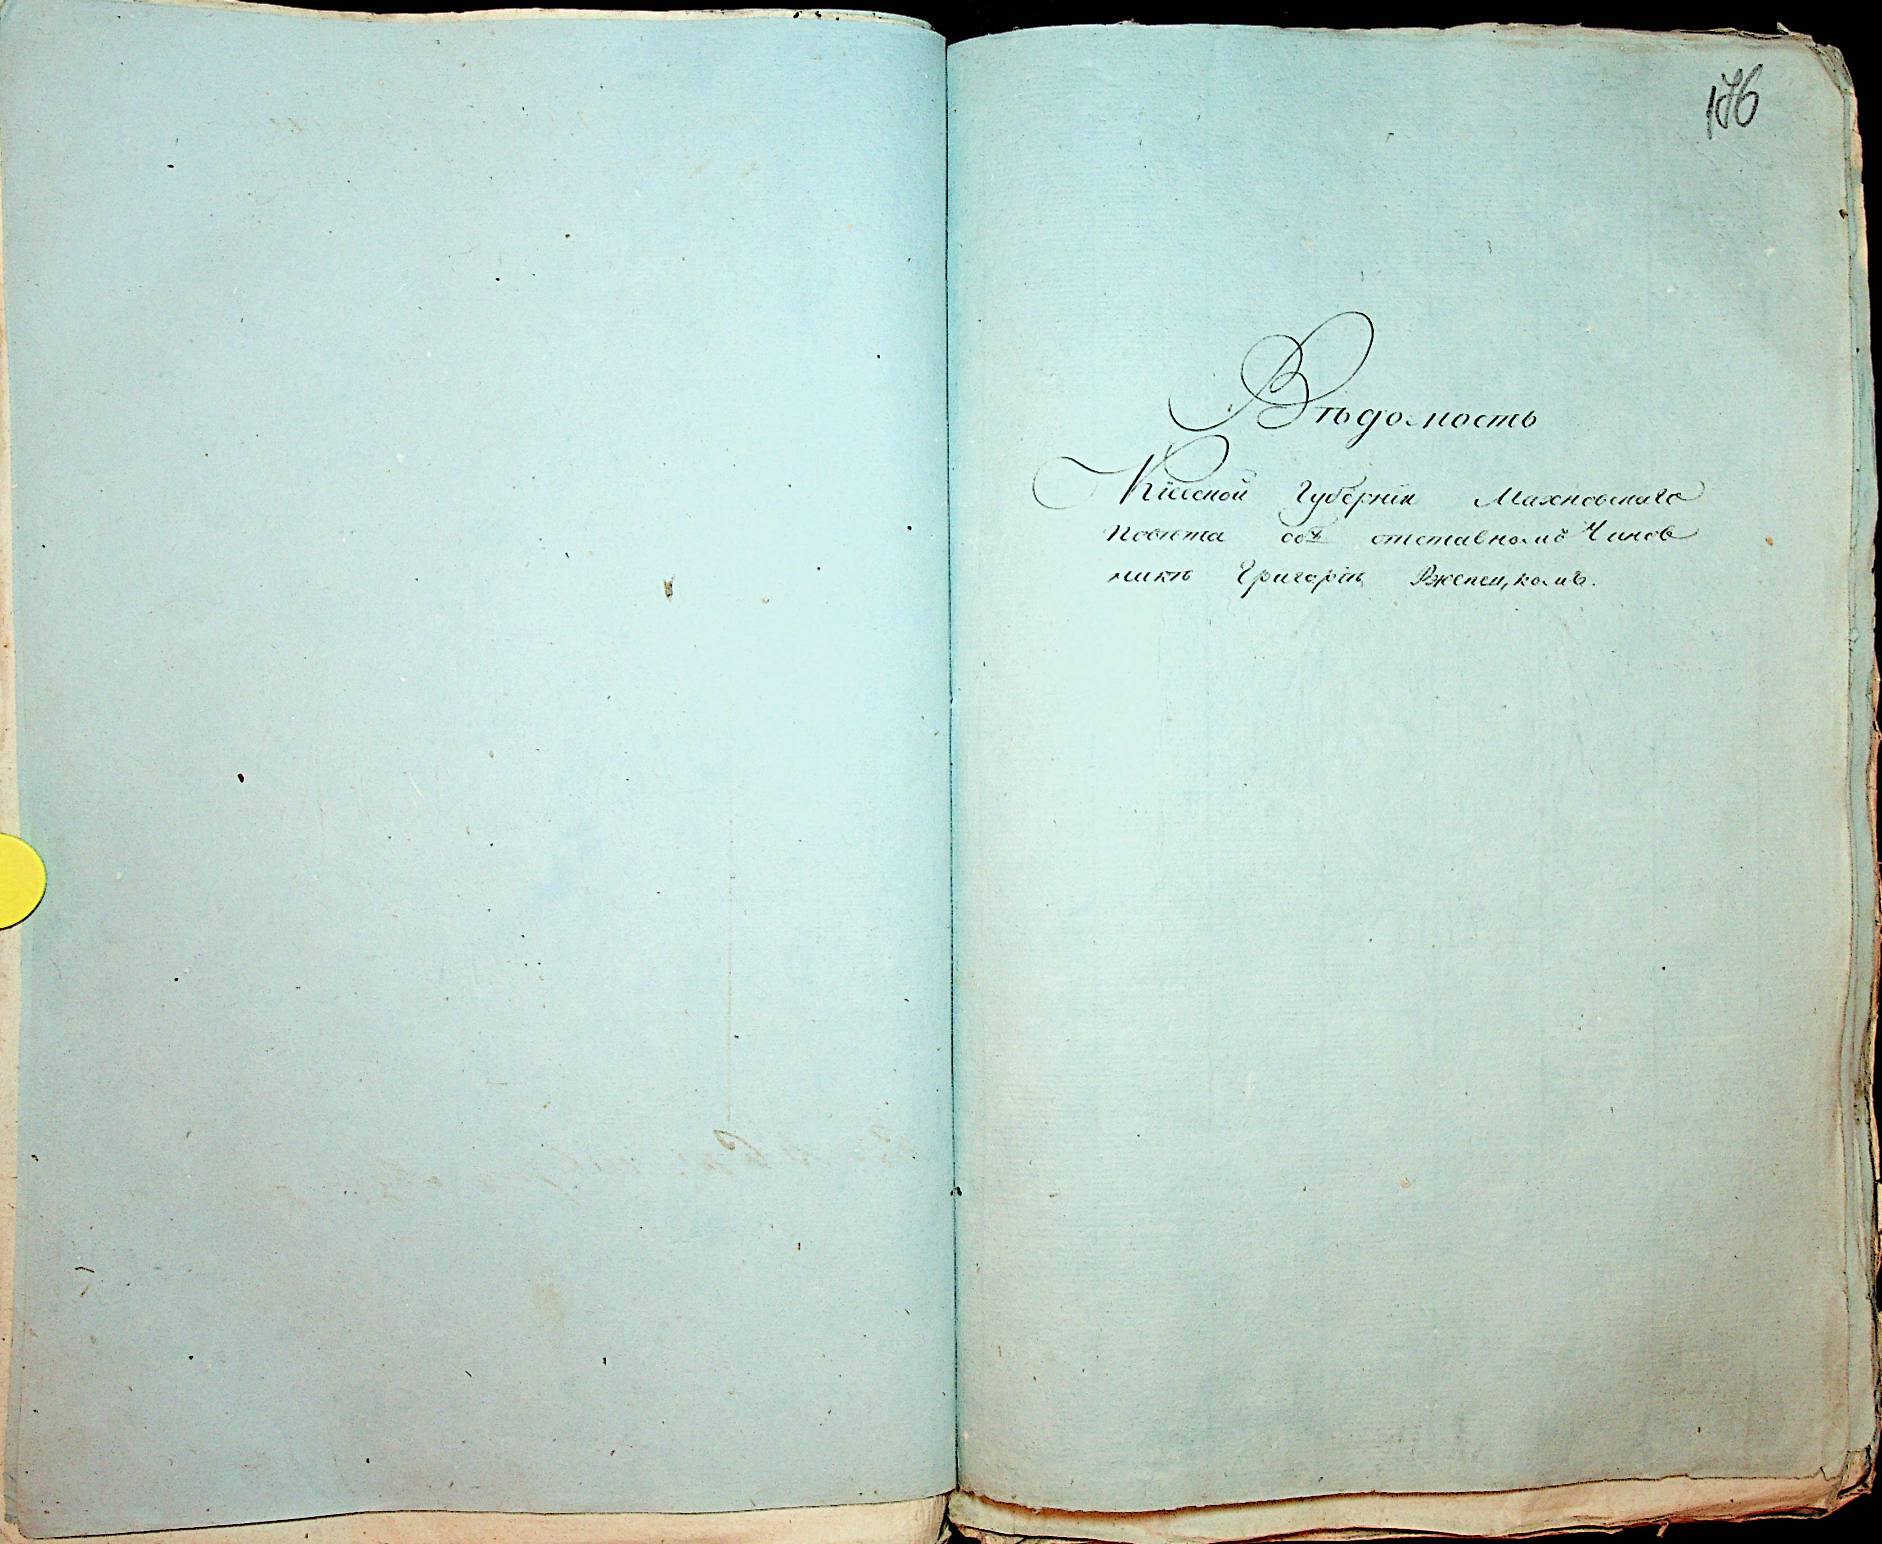 176
Вѣдомость
Кіевской Губерніи Махновскаго
Повѣта объ отставномъ Чинов
никѣ Григоріѣ Ржепецкомъ.